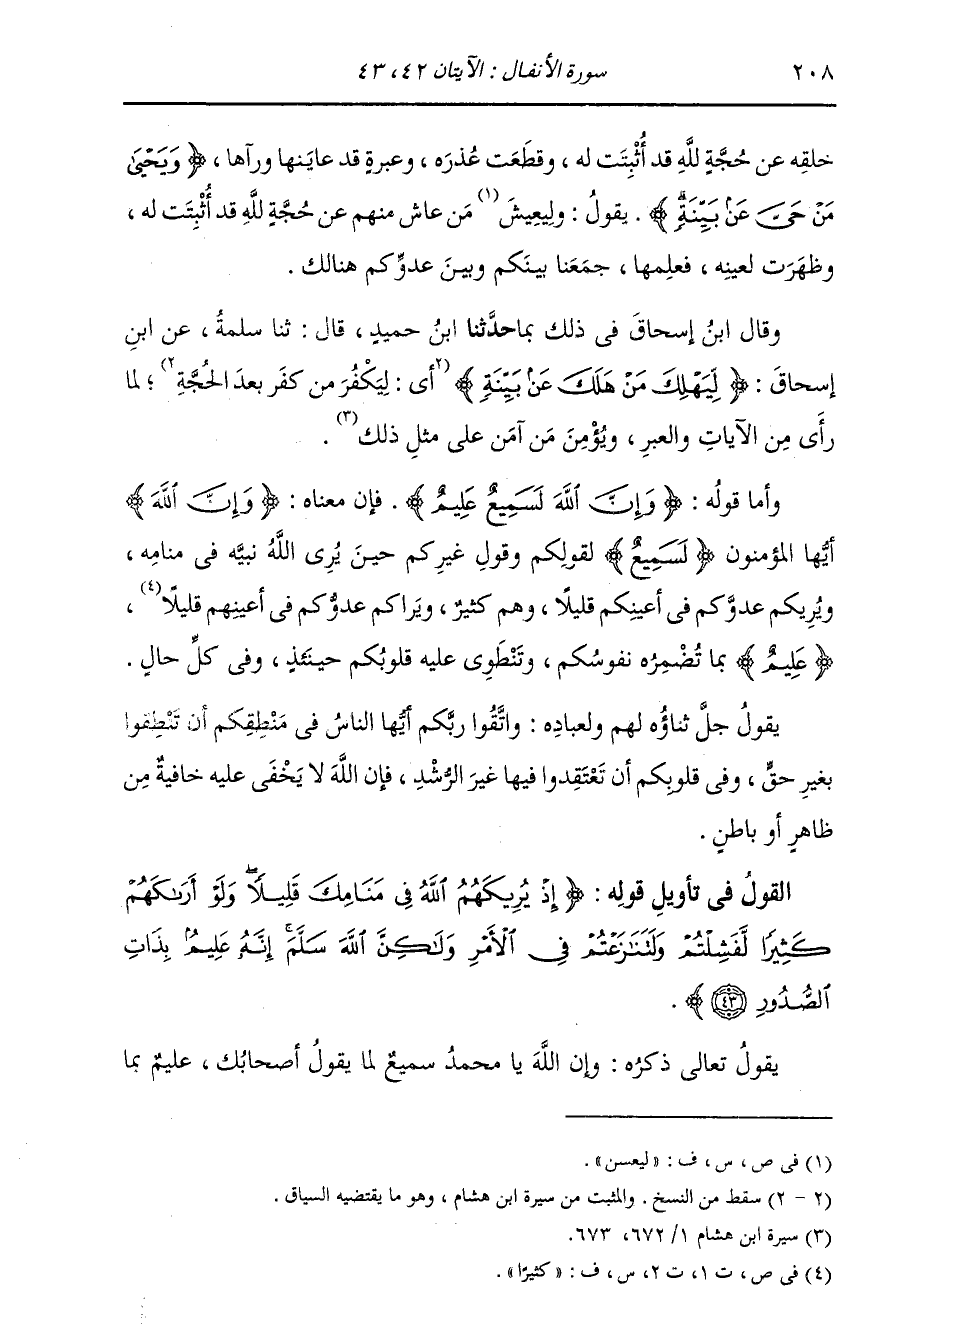 ٢٠٨ سورة الأنفال : الآيتان ٤٢، ٤٣
خلقِه عن حُجَّةٍ للَّهِ قد أُثْبِتَت له ، وقطَعَت عُذرَه ، وعبرةٍ قد عاينها ورآها ، ﴿ وَيَحْيَىٰ
مَنْ حَىَّ عَنْ بَيِّنَةٍ ﴾ . يقولُ : ولِيعِيشَ(١) مَن عاش منهم عن حُجَّةٍ للَّهِ قد أُثْبِتَت له ،
وظهَرَت لعينِه ، فعلِمها ، جمَعَنا بينَكم وبينَ عدوِّكم هنالك .
وقال ابنُ إسحاقَ فى ذلك بما حدَّثنا ابنُ حميدٍ ، قال : ثنا سلمةُ ، عن ابنِ
إسحاقَ : ﴿ لِيَهْلِكَ مَنْ هَلَكَ عَنْ بَيِّنَةٍ ﴾ (٢أى : لِيَكْفُرَ من كفَر بعدَ الحُجَّةِ٢) ؛ لما
رأَى مِن الآياتِ والعبرِ ، ويُؤْمِنَ مَن آمَن على مثلِ ذلك(٣) .
وأما قولُه : ﴿ وَإِنَّ ٱللَّهَ لَسَمِيعٌ عَلِيمٌ ﴾ . فإن معناه : ﴿ وَإِنَّ ٱللَّهَ ﴾
أيُّها المؤمنون ﴿ لَسَمِيعٌ ﴾ لقولِكم وقولِ غيرِكم حينَ يُرِى اللَّهُ نبيَّه فى منامِه ،
ويُرِيكم عدوَّكم فى أعينِكم قليلًا ، وهم كثيرٌ ، ويَراكم عدوُّكم فى أعينِهم قليلًا(٤) ،
﴿ عَلِيمٌ ﴾ بما تُضْمِرُه نفوسُكم ، وتَنْطَوِى عليه قلوبُكم حينَئذٍ ، وفى كلِّ حالٍ .
يقولُ جلَّ ثناؤُه لهم ولعبادِه : واتَّقُوا ربَّكم أيُّها الناسُ فى مَنْطِقِكم أن تَنْطِقوا
بغيرِ حقٍّ ، وفى قلوبِكم أن تَعْتَقِدوا فيها غيرَ الرُّشْدِ ، فإن اللَّهَ لا يَخْفَى عليه خافيةٌ مِن
ظاهرٍ أو باطنٍ .
القولُ فى تأويلِ قولِه : ﴿ إِذْ يُرِيكَهُمُ ٱللَّهُ فِى مَنَامِكَ قَلِيلًا ۖ وَلَوْ أَرَىٰكَهُمْ
كَثِيرًا لَّفَشِلْتُمْ وَلَتَنَٰزَعْتُمْ فِى ٱلْأَمْرِ وَلَٰكِنَّ ٱللَّهَ سَلَّمَ ۚ إِنَّهُ عَلِيمٌۢ بِذَاتِ
ٱلصُّدُورِ ٤٣ ﴾ .
يقولُ تعالى ذكرُه : وإن اللَّهَ يا محمدُ سميعٌ لما يقولُ أصحابُك ، عليمٌ بما
(١) فى ص ، س ، ف : « ليعسن » .
(٢ - ٢) سقط من النسخ . والمثبت من سيرة ابن هشام ، وهو ما يقتضيه السياق .
(٣) سيرة ابن هشام ١/ ٦٧٢، ٦٧٣.
(٤) فى ص ، ت ١، ت ٢، س ، ف : « كثيرًا » .